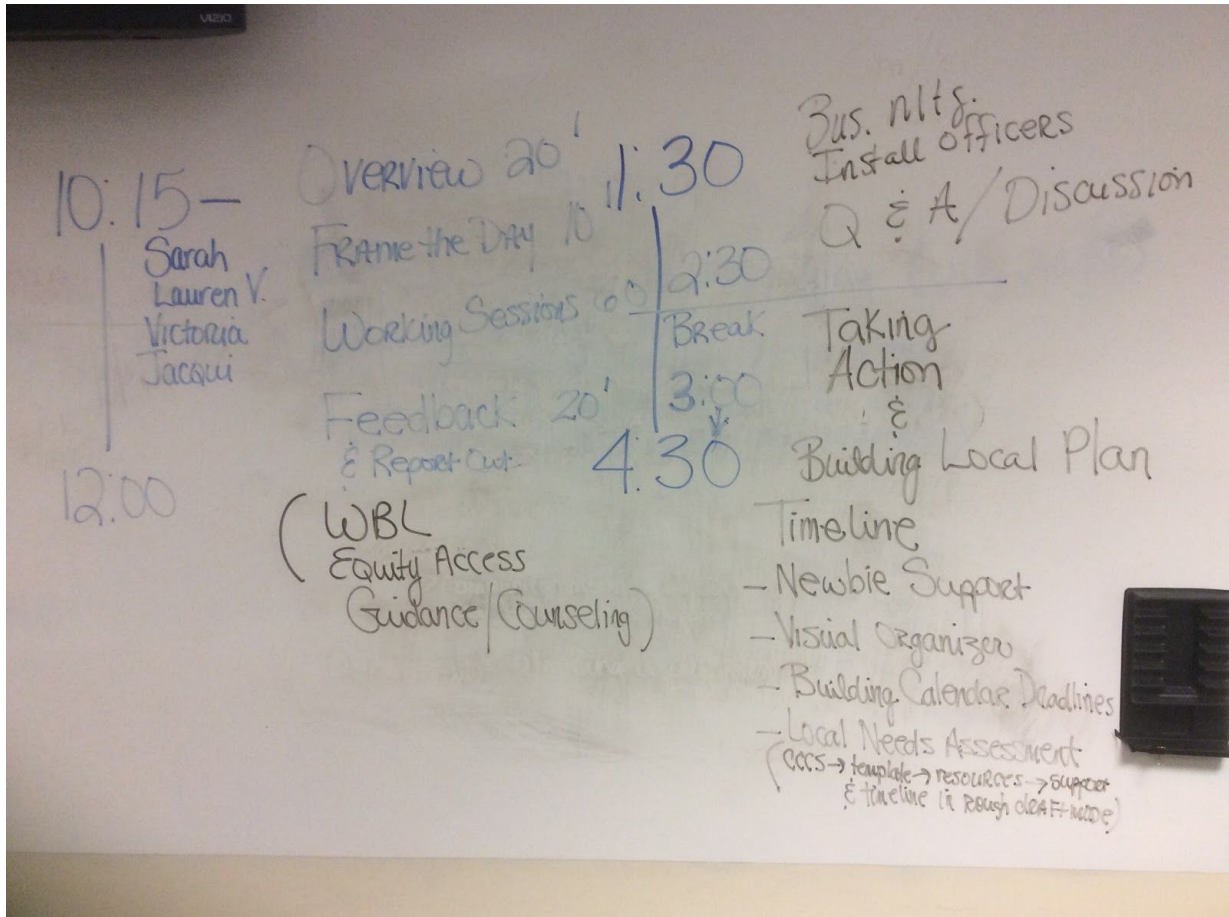 VIZIO
10:15—
Sarah
Lauren V.
Victoria
Jacqui
12:00
Overview 20'
Frame the Day 10
Working Sessions 60
Feedback 20'
& Report Out
(WBL
Equity Access
Guidance/Counseling)
1:30
2:30
Break
3:00
4:30
Bus. Mtg.
Install Officers
Q & A/Discussion
Taking
Action
&
Building Local Plan
Timeline
- Newbie Support
- Visual Organizer
- Building Calendar Deadlines
- Local Needs Assessment
(CCCS → template → resources → support
& timeline in rough draft mode)